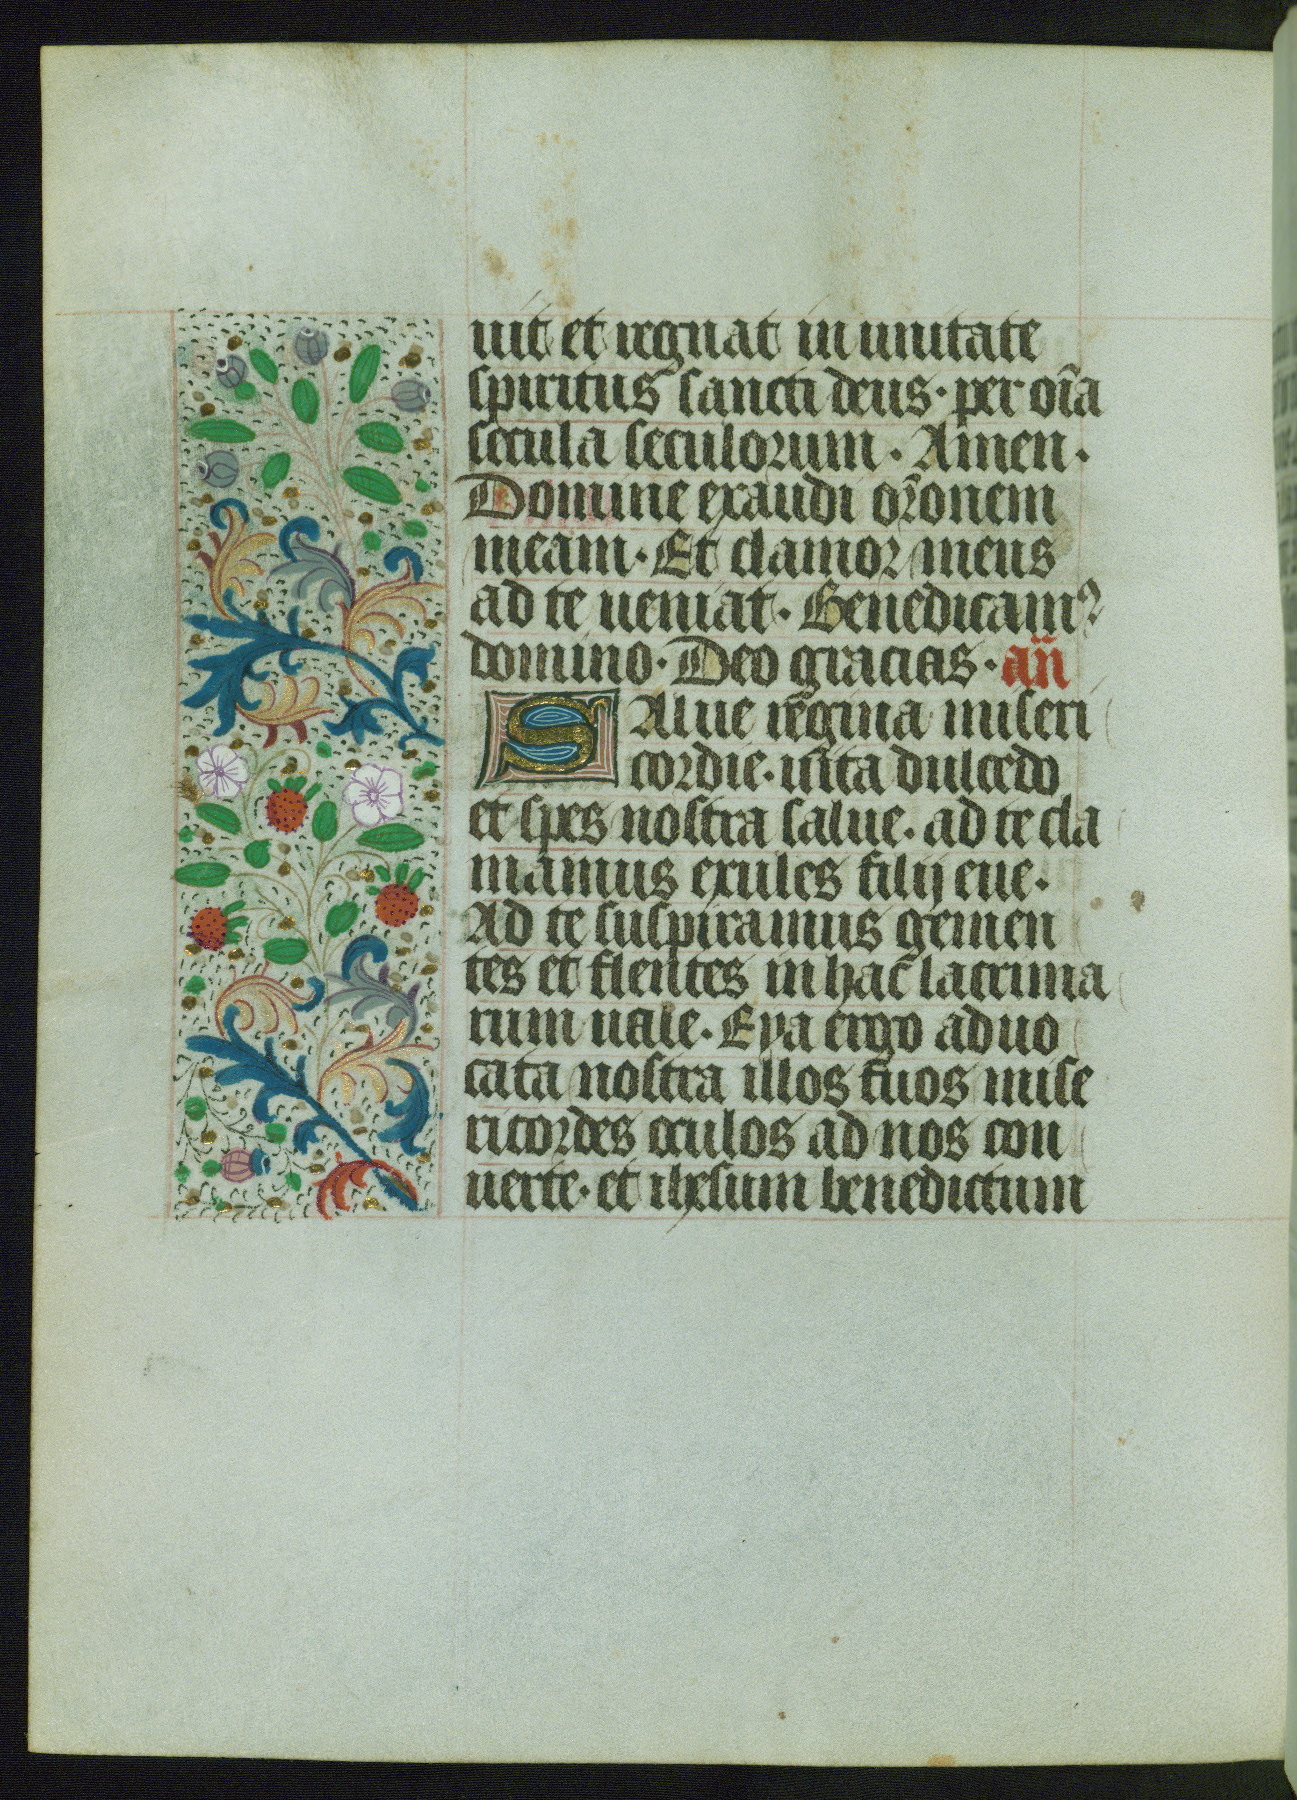 uit et regnat in unitate
spiritus sancti deus · per oı̃a
secula seculorum · Amen ·
Domine exaudi or̃onem
meam · Et clamor meus
ad te ueniat · Benedicamꝰ
domino · Deo gracias · an̄
Salue regina miseri
cordie · uita dulcedo
et spes nostra salue · ad te cla
mamus exules filij eue ·
Ad te suspiramus gemen
tes et flentes in hac lacrima
rum ualle · Eya ergo aduo
cata nostra illos tuos mise
ricordes oculos ad nos con
uerte · et ihesum benedictum